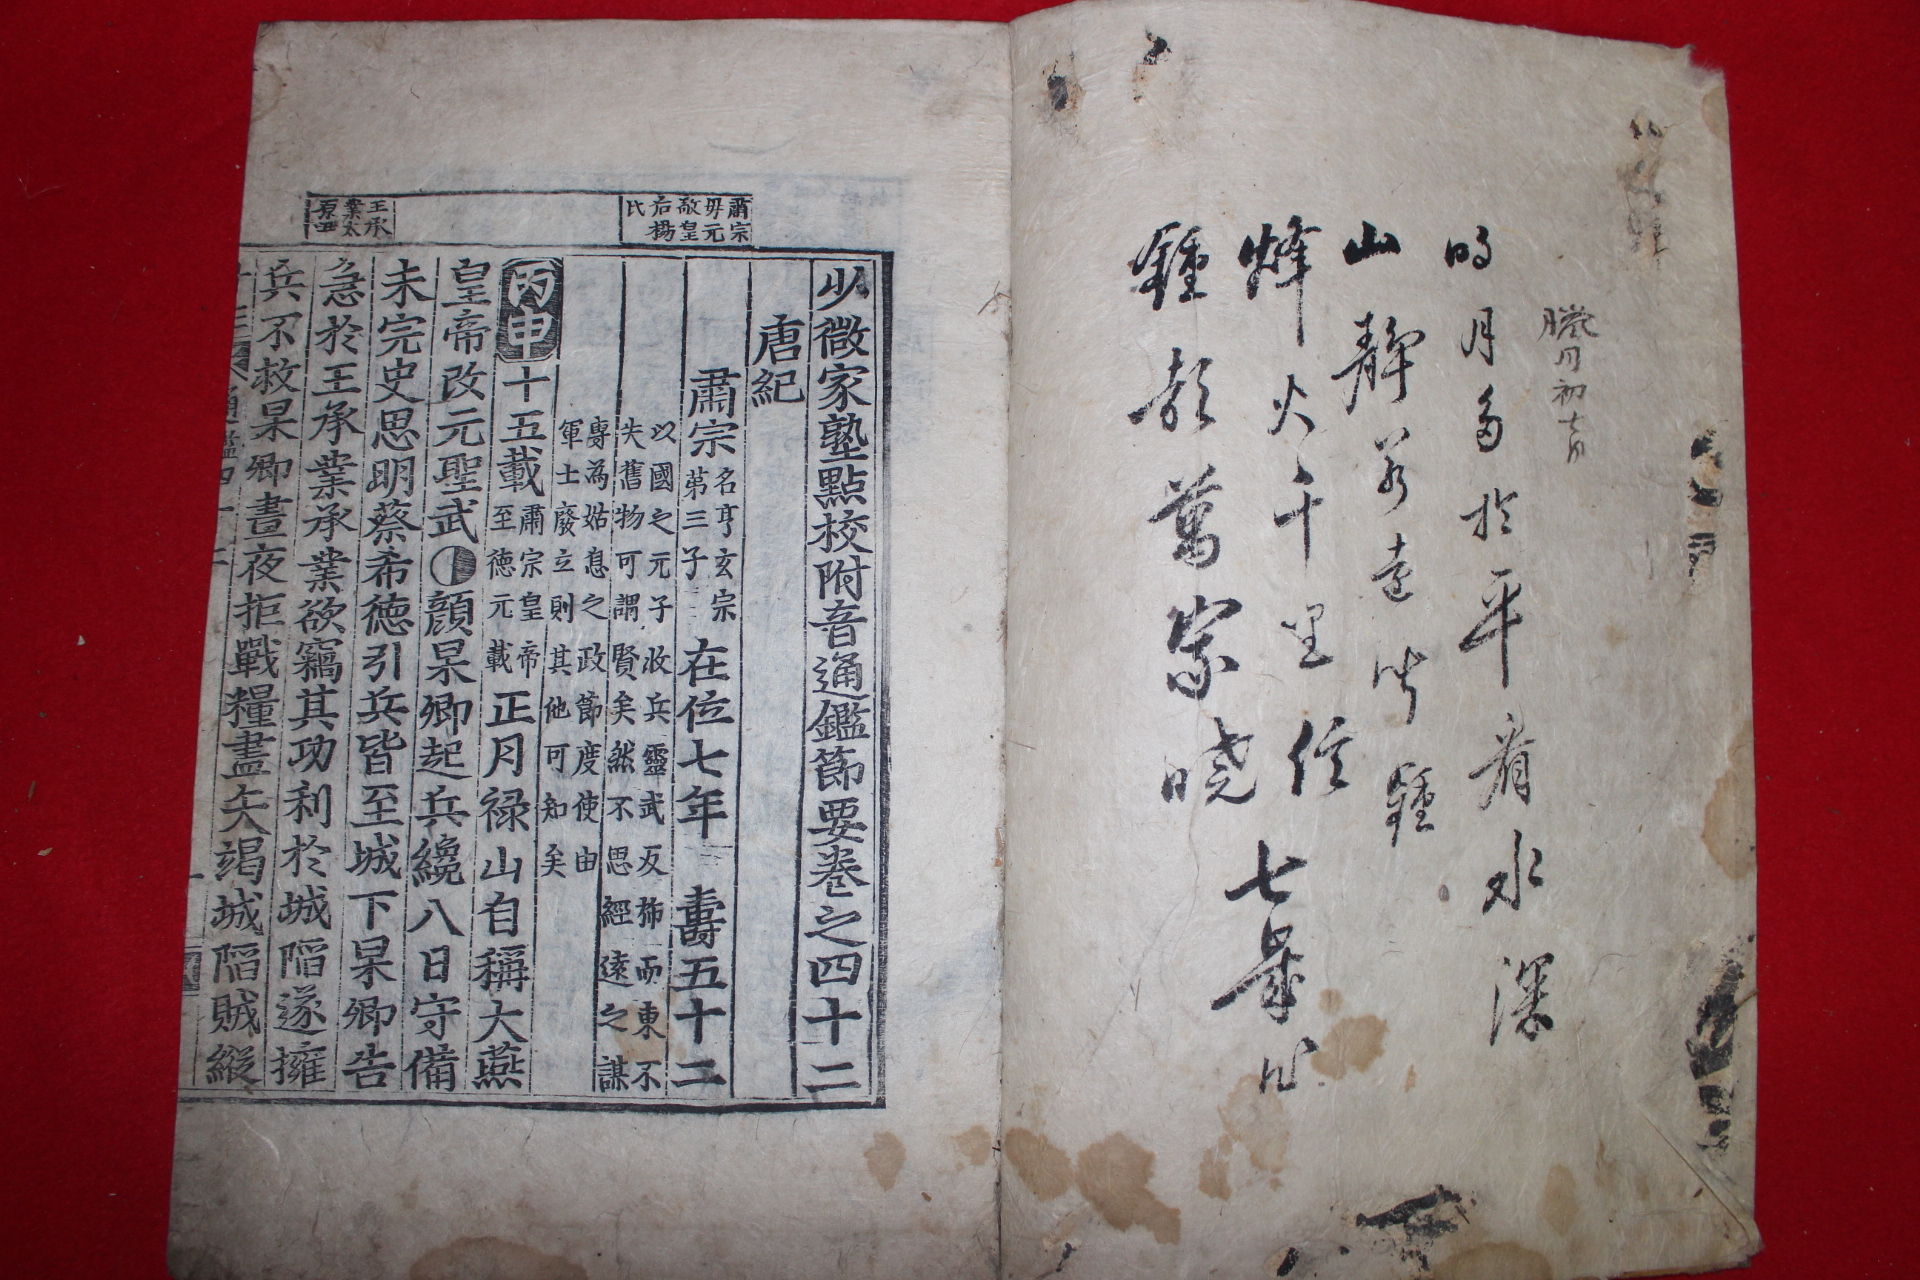 臘月初七日
明月多於平看水深
山靜若遠皆鍾
烽火千里信
鍾鼓萬家曉
七
肅宗
毋元
敵皇
后楊
氏
王承
業太
原
少微家塾點校附音通鑑節要卷之四十二
唐紀
肅宗名亨玄宗第三子在位七年 壽五十二
以國之元子收兵靈武反旆而東不
失舊物可謂賢矣然不思經遠之謀
專為姑息之政節度使由
軍士廢立則其他可知矣
丙申十五載肅宗皇帝至德元載正月祿山自稱大燕
皇帝改元聖武顔杲卿起兵纔八日守備
未完史思明蔡希德引兵皆至城下杲卿告
急於王承業承業欲竊其功利於城陷遂擁
兵不救杲卿晝夜拒戰糧盡矢竭城陷賊縱
通鑑四十二